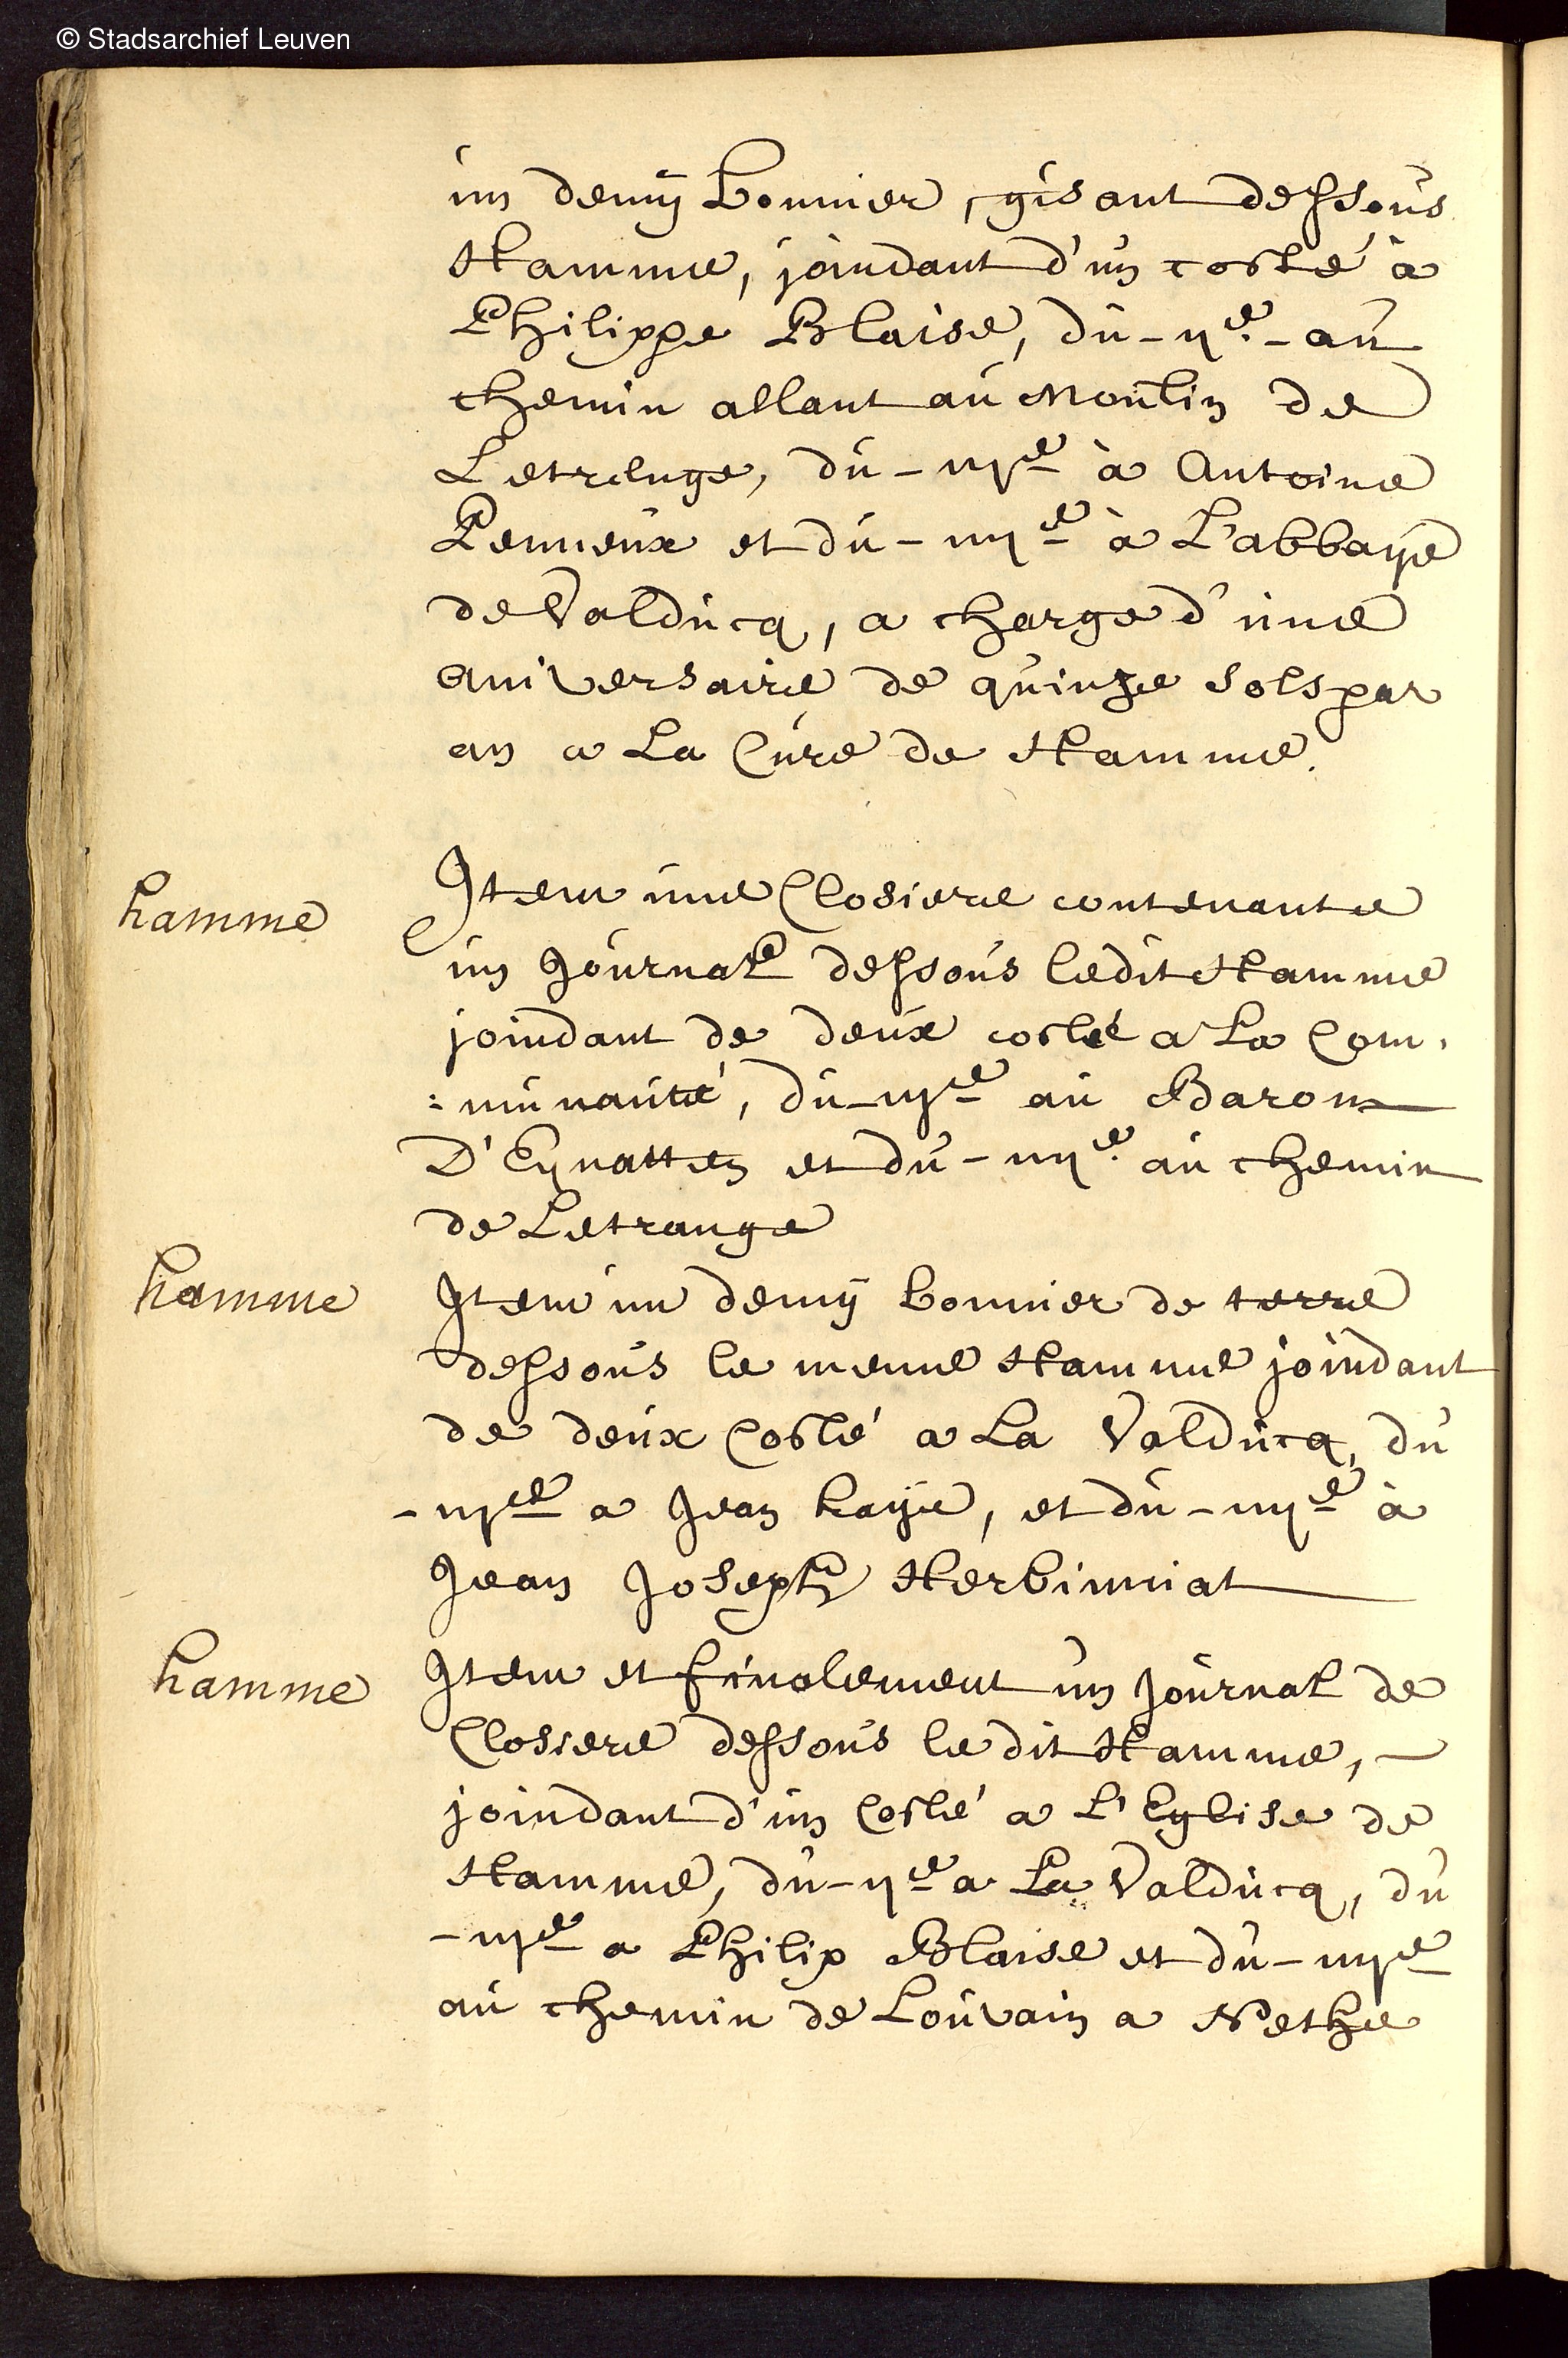 © Stadsarchief Leuven
un demÿ bonnier, gisant dessous
Hamme, joindant d'un costé à
Philippe Blaise, du - ij.e - au
chemin allant au Moulin de
Letrenge, du - iij e à Antoine
Penneux et du - iiij e à L'abbaÿe
de Valducq, a charge d'une
aniversaire de quinze sols par
an a La Cure de Hamme.
hamme
Item une Closiere contenante
un Journal dessous ledit Hamme
joindant de deux costé a La Com:
:munauté, du - iij e au Baron
D'Eynatten et du - iiij e. au chemin
de Letrange
hamme
Item un demÿ bonnier de terre
dessous le meme Hamme joindant
de deux Costé a La Valducq, du
- iij e a Jean haÿe, et du - iiij e à
Jean Joseph Herbinniat
hamme
Item et finalement un Journal de
Closiere dessous le dit Hamme,
joindant d'un Costé a L'Eglise de
Hamme, du - ij e a La Valducq, du
- iij e a Philip Blaise et du - iiij e
au chemin de Louvain a Nethe